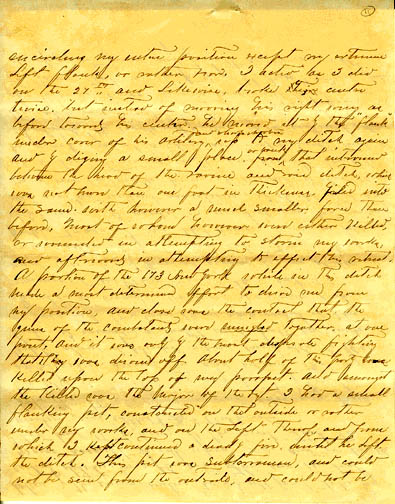 encircling my entire position except my extreme
left flank, or rather tried. I acted as I did
on the 27th and likewise, broke his centre
twice. but instead of moving his right wing as
before towards his centre, he moved it by the "flank"
under cover of his artillery, up to my ditch again
and sharpshooters
and by digging a small place from that ran around
between the head of the ravine and said ditch, which
was not more than one foot in thickness filed into
the same with however a much smaller force than
before, most of whom however were either killed,
or wounded in attempting to storm my works,
and afterwards in attempting to effect this retreat.
A portion of the 173 New York while in the ditch
made a most determined effort to drive me from
my position, and close was the contest that, the
guns of the combatants were mingled together, at one
point, and it was only by the most desperate fighting
that they was driven off. About half of this party was
killed upon the top of my parapet. and amongst
the killed was the Major of the Regt. I had a small
flanking pit, constructed on the outside or rather
under my works, and on the left thereof, and from
which I kept continued a deadly fire, until he left
the ditch. This pit was subterranean, and could
not be seen from the outside, and could not be